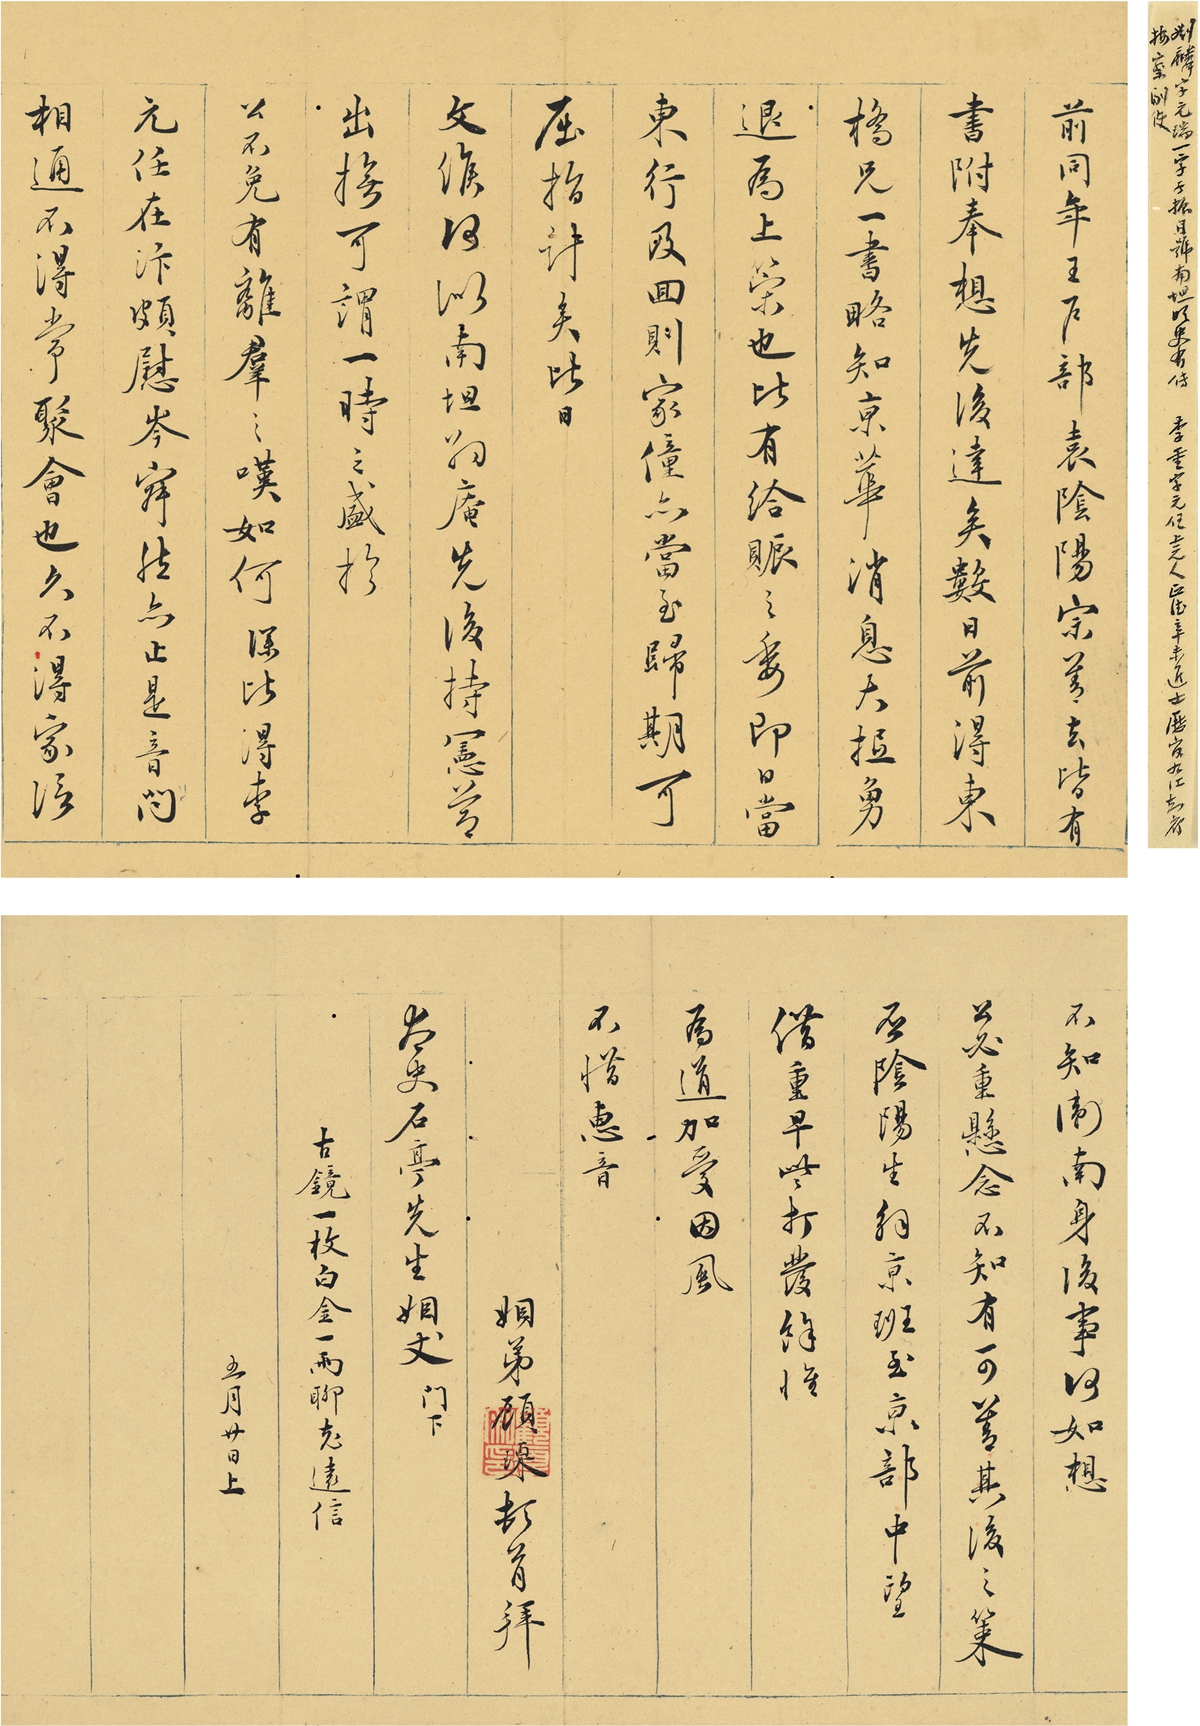 劉麟字元瑞一字子振自號南坦明史有傳 李重字元任上元人正德辛未進士歷官九江知府
按察副使
前同年王戶部袁陰陽宗善去皆有
書附奉想先後達矣數日前得東
橋兄一書略知京華消息大抵勇
退為上策也此有給賑之委即日當
東行及回則家僮亦當至歸期可
屈指計矣比日
文候何似南坦約庵先後持憲節
出撫可謂一時之盛於
公不免有離羣之嘆如何深比得李
元任在汴頗慰岑寂然亦止是音問
相通不得常聚會也久不得家信
不知衛南身後事何如想
公必重懸念不知有可善其後之策
否陰陽生到京班至京部中望
借重早些打發餘惟
為道加愛因風
不惜惠音
姻弟顧璘頓首拜
太史石亭先生姻丈門下
古鏡一枚白金一兩聊充遠信
五月廿日上